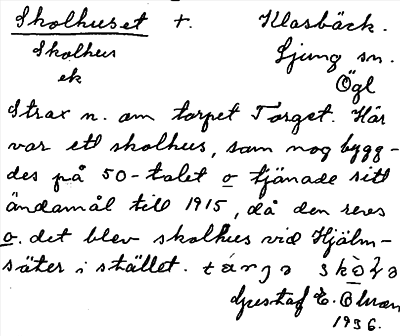 Skolhuset t. Klasbäck.
Skolhus Ljung sn.
ek Ögl
Strax n. om torpet Torget. Här
var ett skolhus, som nog bygg-
des på 50-talet o tjänade sitt
ändamål till 1915, då den revs
o. det blev skolhus vid Hjälm-
säter i stället.
Gustaf E.
1936.